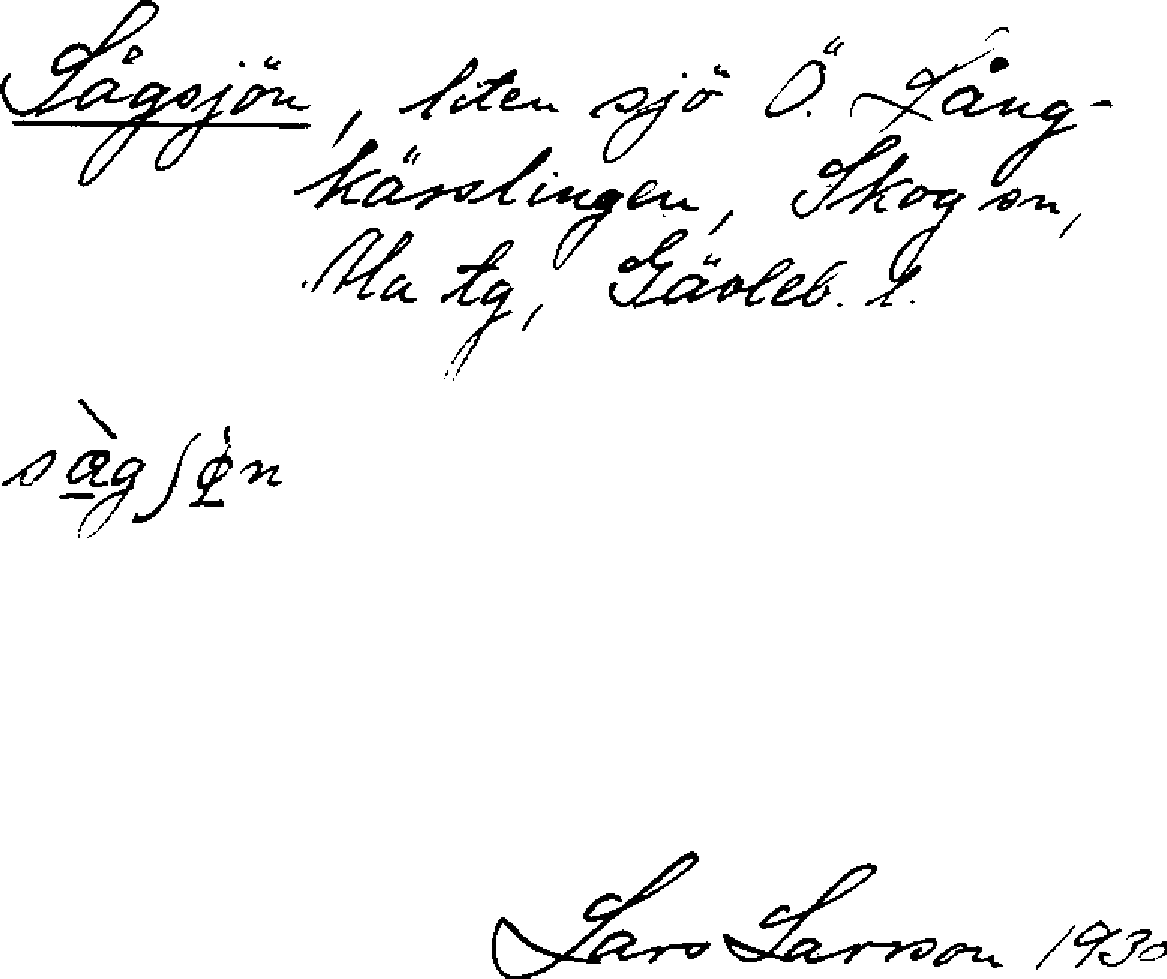 Sågsjön, liten sjö Ö. Lång-
kärslingen, Skog sn,
Ala tg, Gävleb. l.
sàgʃøn
Lars Larsson 1930